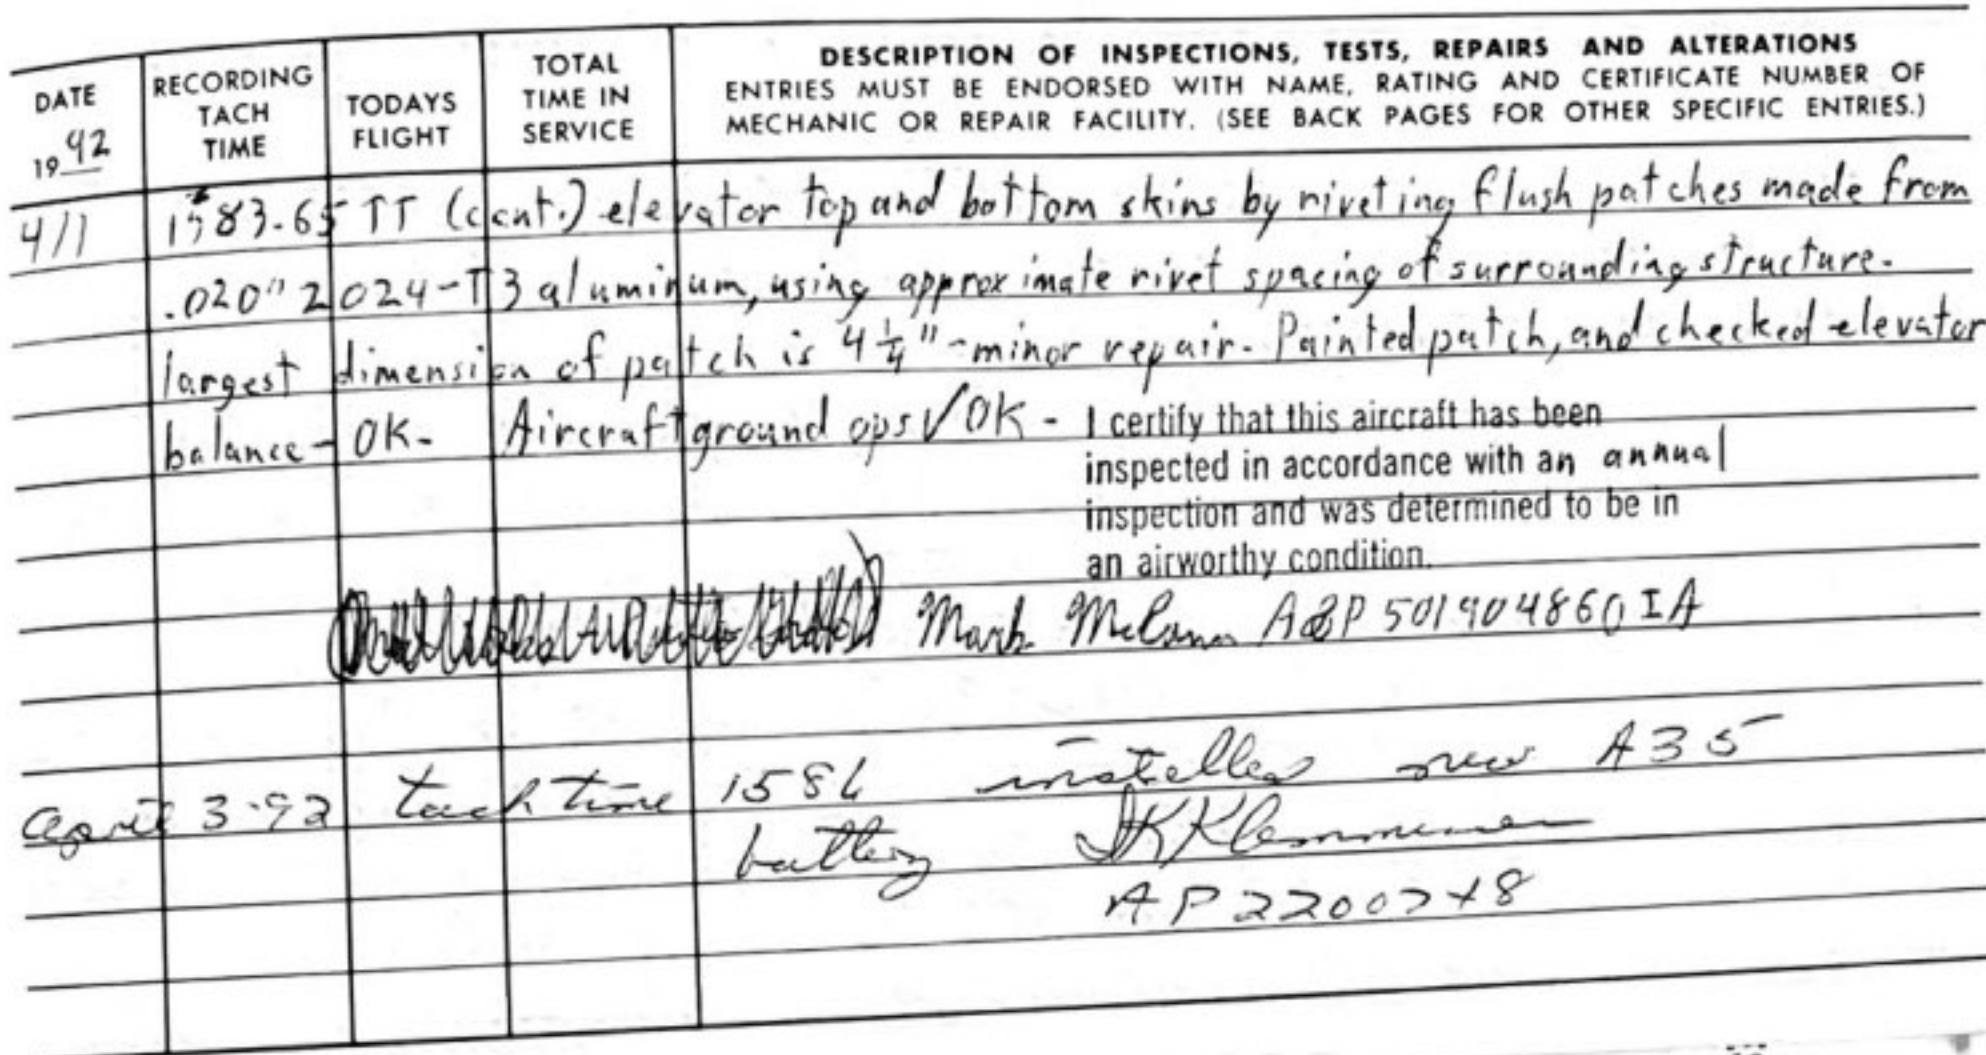 DATE 19 92 RECORDING TACH TIME TODAYS FLIGHT TOTAL TIME IN SERVICE
DESCRIPTION OF INSPECTIONS, TESTS, REPAIRS AND ALTERATIONS
ENTRIES MUST BE ENDORSED WITH NAME, RATING AND CERTIFICATE NUMBER OF
MECHANIC OR REPAIR FACILITY. (SEE BACK PAGES FOR OTHER SPECIFIC ENTRIES.)
4/1 1583.65 TT (cont.) elevator top and bottom skins by riveting flush patches made from
.020" 2024-T3 aluminum, using approximate rivet spacing of surrounding structure.
largest dimension of patch is 4 1/4" - minor repair. Painted patch, and checked elevator
balance - OK. Aircraft ground ops √ OK - I certify that this aircraft has been
inspected in accordance with an annual
inspection and was determined to be in
an airworthy condition.
Mark A&P 501904860 IA
April 3-92 tach time 1586 installed new A35
battery
AP